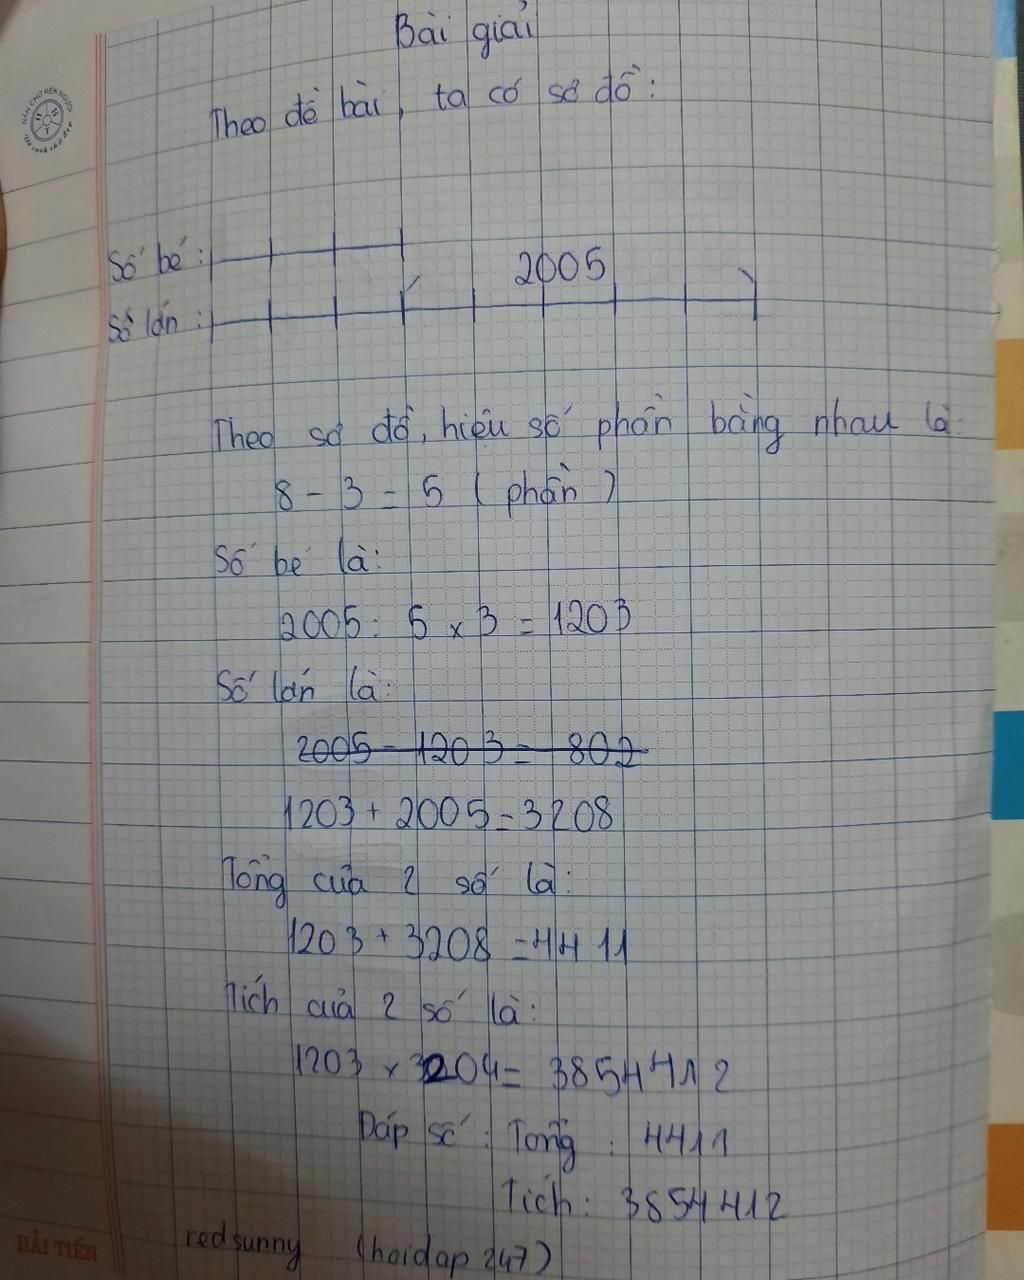 Bài giải
Theo đề bài, ta có sơ đồ:
Số bé:
2005
Số lớn:
Theo sơ đồ, hiệu số phần bằng nhau là:
8 - 3 = 5 (phần)
Số bé là:
2005 : 5 x 3 = 1203
Số lớn là:
2005 - 1203 = 802
1203 + 2005 = 3208
Tổng của 2 số là:
1203 + 3208 = 4411
Tích của 2 số là:
1203 x 3204 = 3854412
Đáp số: Tổng: 4411
Tích: 3854412
HẢI TIẾN
redsunny (hoidap247)